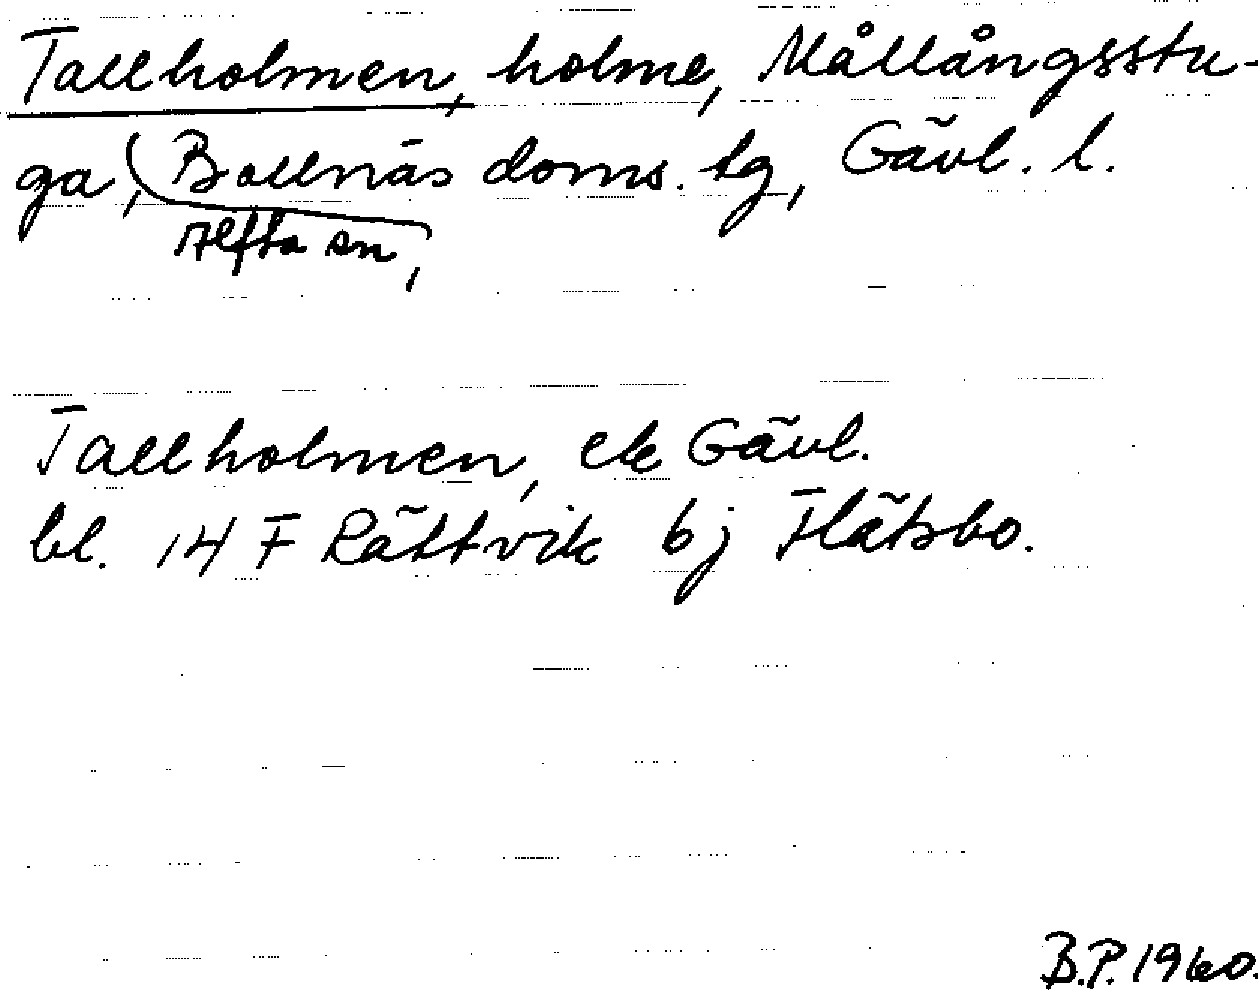 Tallholmen, holme, Mållångsstu-
ga, Bollnäs doms. tg, Gävl. l.
Alfta sn,
Tallholmen, ek Gävl.
bl. 14 F Rättvik bj Flätsbo.
B.P. 1960.